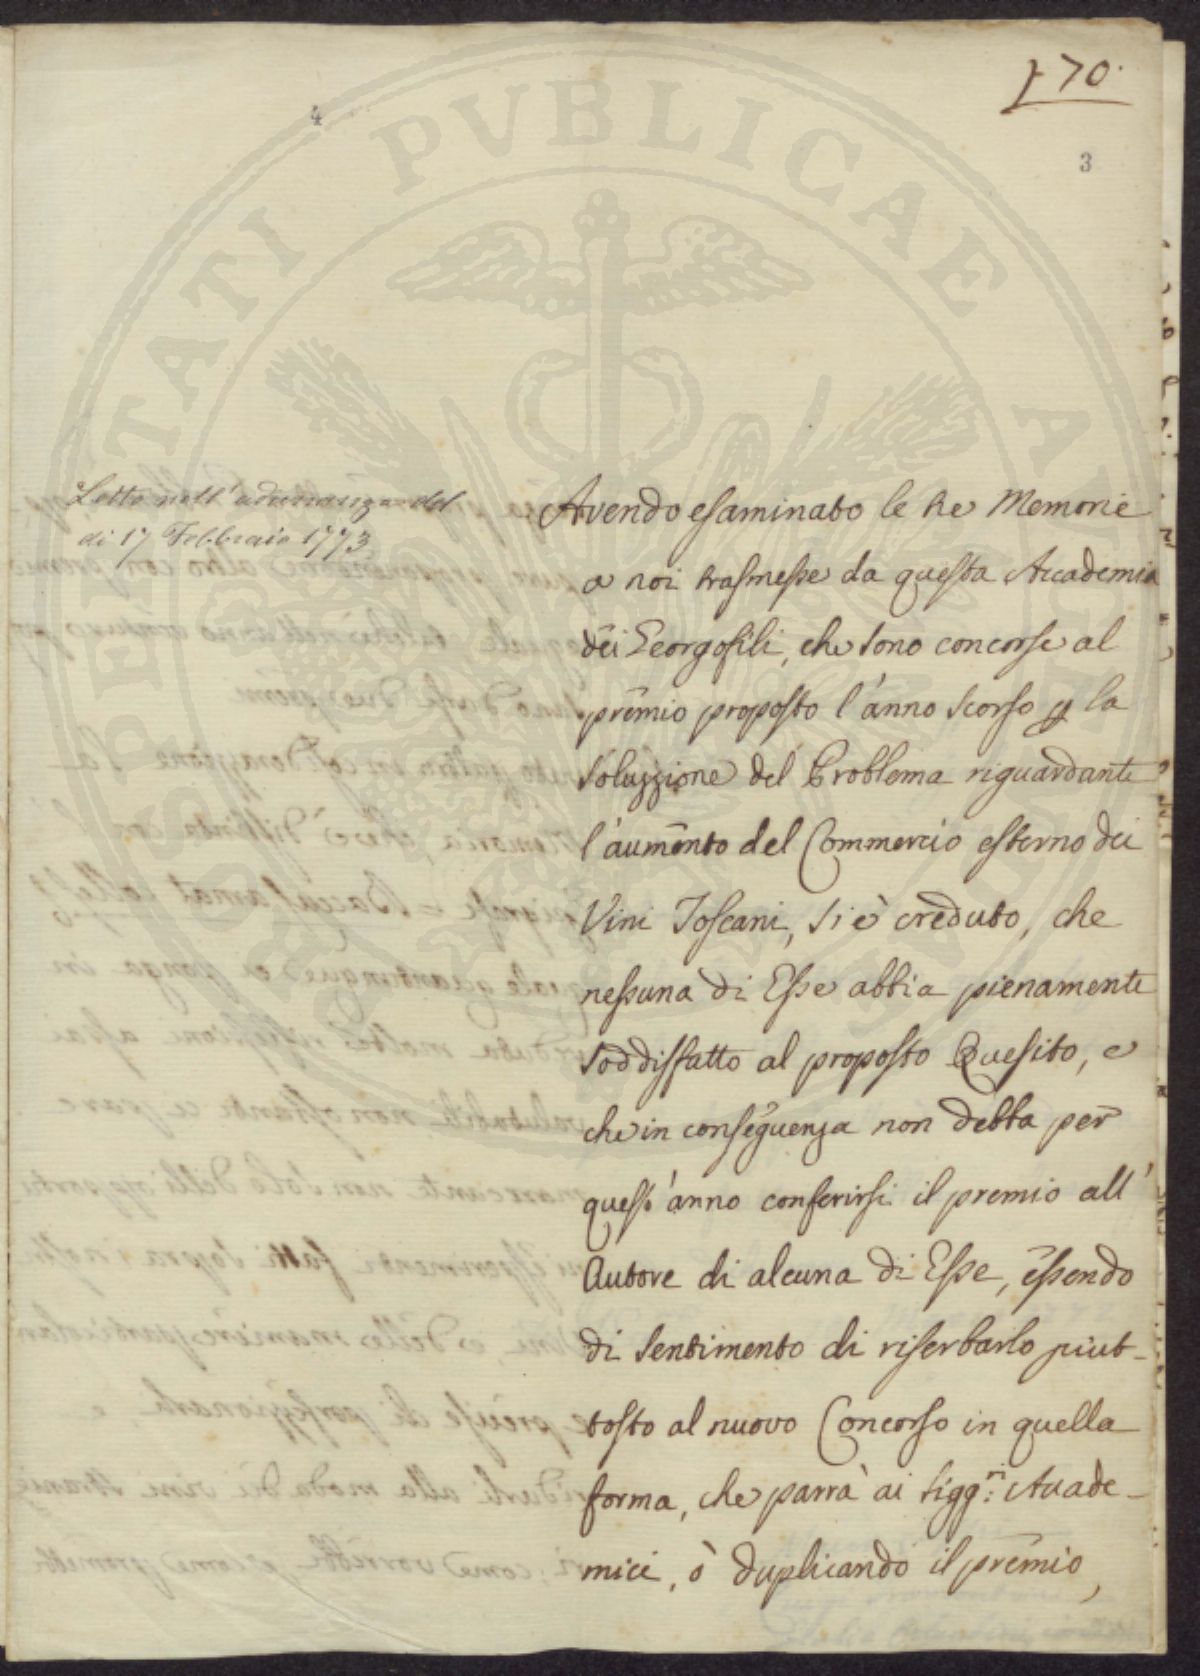 170.
4
3
Letto nell'adunanza del
di 17 Febbraio 1773
Avendo esaminato le tre Memorie
a noi trasmesse da questa Accademia
dei Georgofili, che sono concorse al
premio proposto l'anno scorso p la
soluzzione del Problema riguardante
l'aumento del Commercio esterno dei
Vini Toscani, si è creduto, che
nessuna di Esse abbia pienamente
soddisfatto al proposto Quesito, e
che in conseguenza non debba per
quest'anno conferirsi il premio all'
Autore di alcuna di Esse, essendo
di sentimento di riserbarlo piut-
tosto al nuovo Concorso in quella
forma, che parrà ai Sigg:ri Accade-
mici, ò duplicando il premio,
PROSPERITATI PVBLICAE AVGENDAE